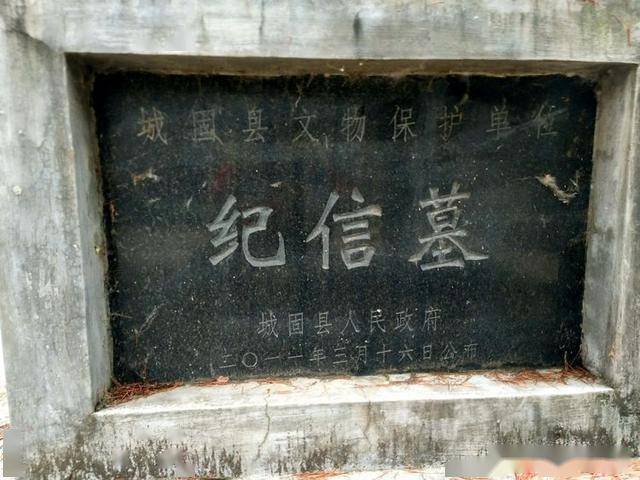 城固县文物保护单位
纪信墓
城固县人民政府
二〇一一年三月十六日公布